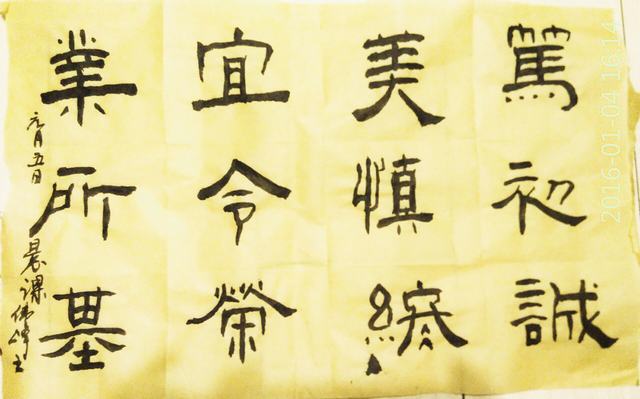 篤初誠
美慎終
宜令榮
業所基
元月五日晨课
2016-01-04 16:14